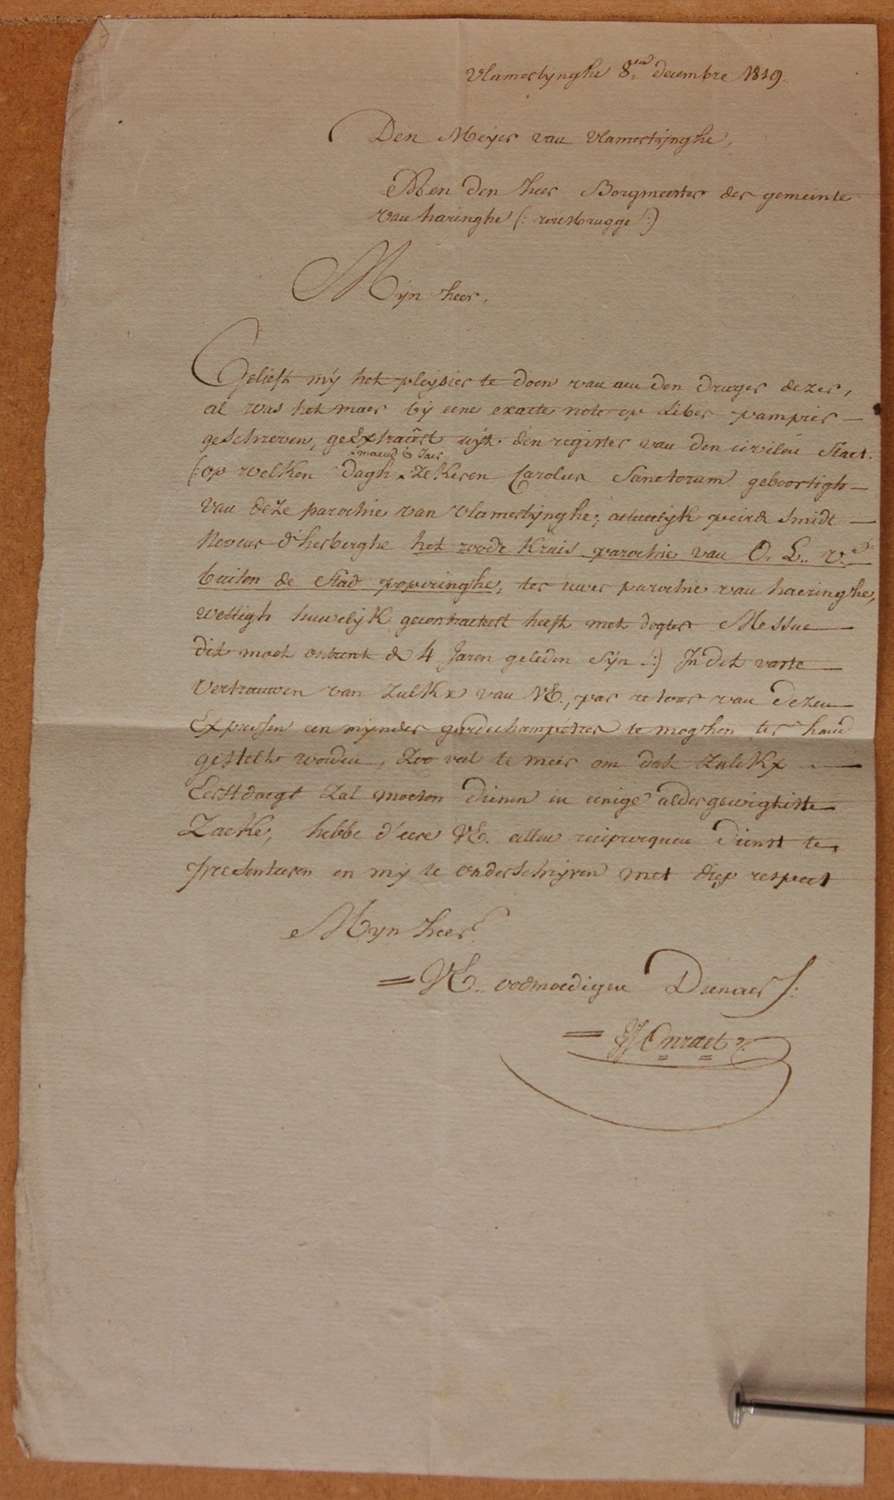 Vlamertynghe 8en decembre 1819.
Den Meyer van Vlamertynghe,
Aen den heer Borgmeester der gemeinte
van haringhe (: rousbrugge :)
Mijn heer,
Gelieft my het pleysier te doen van aen den drager dezer,
al was het maer by eene exacte note op liber pampier
geschreven, geExtraért uijt den register van den civilen Staet.
(op welken dagh maend & Jaer zekeren Carolus Sanctorum geboortigh
van deze parochie van Vlamertynghe; actuelyk peird Smidt
Nevens d'herberghe het roodt Kruis parochie van O. L. V.
buiten de Stad poperinghe, ter uwer parochie van haeringhe,
wettigh huwelyk gecontracteert heeft met dogter Messue
dit moet ontrent de 4 Jaren geleden Syn :) In det vaste
Vertrouwen van zulkx van UE., par retour van dezen
Expressen een mynder gardechampetres te moghen ter hand
gestelt worden, zoo veel te meer om dat zulckx
Eerstdaegs zal moeten dienen in eenige aldergewightste
Zaeke, hebbe d'eere UE. allen reciproquen dienst te
presenteeren en my te onderschryven met diep respect
Mijn heer
UE. oodmoedigen Dienaer